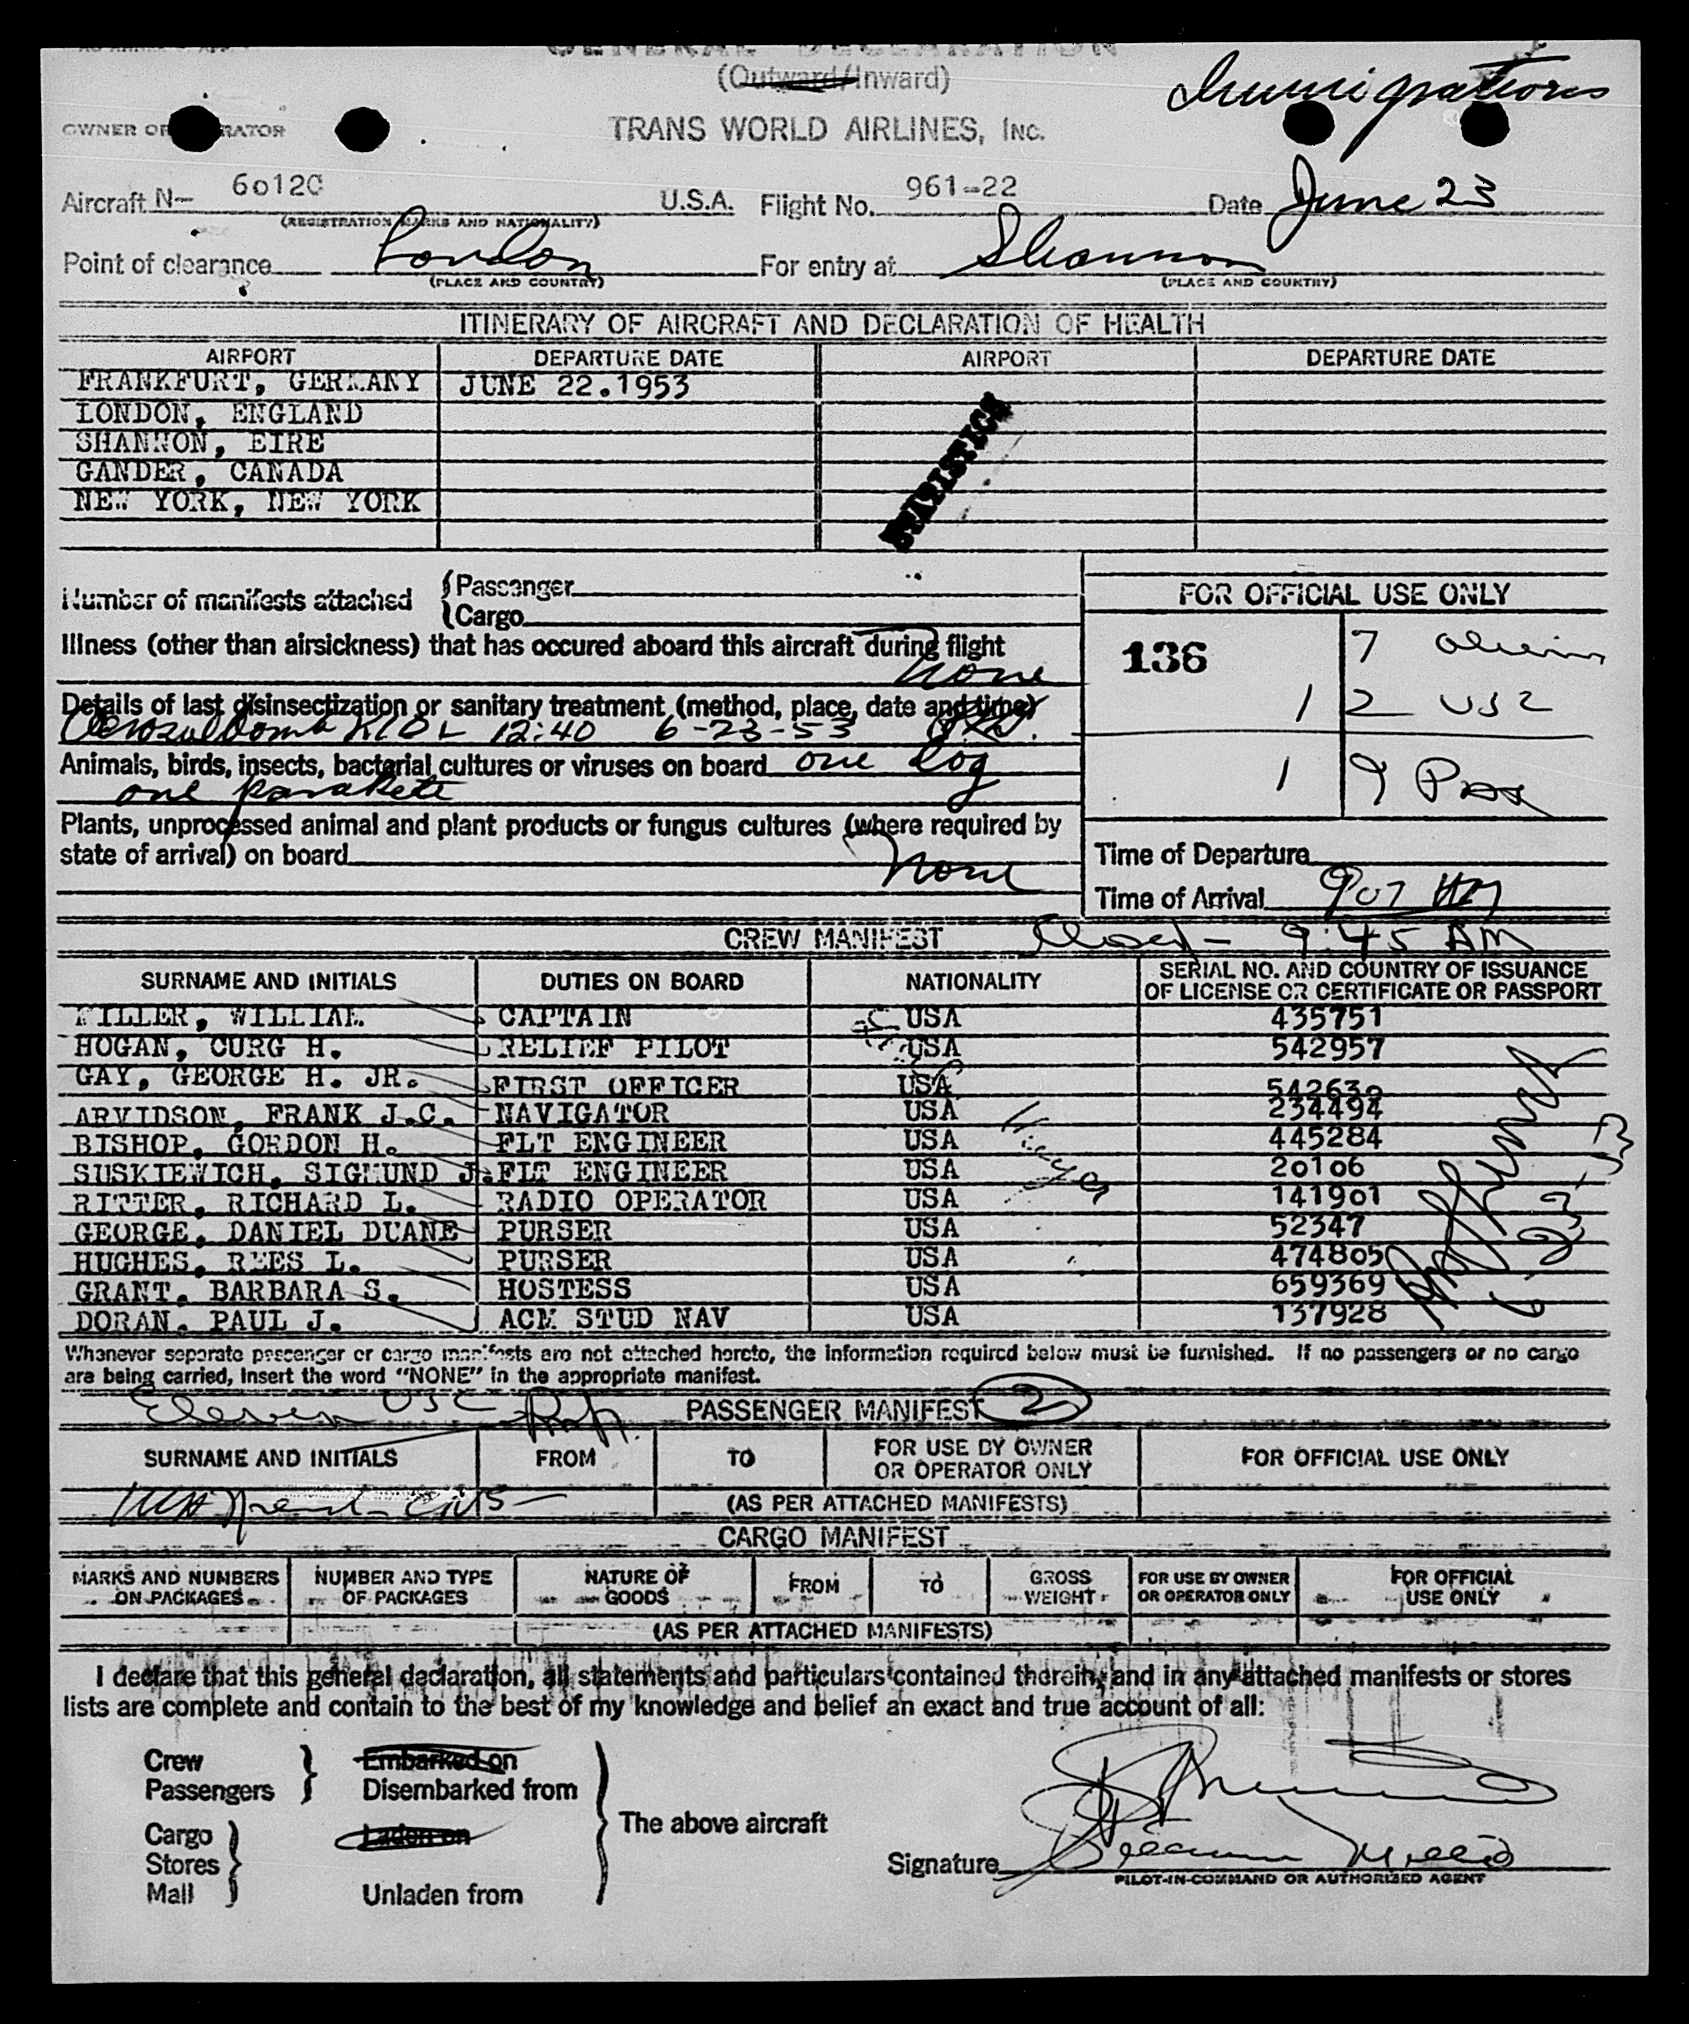 GENERAL DECLARATION
(Outward/Inward)
Immigration
OWNER OR OPERATOR
TRANS WORLD AIRLINES, INC.
Aircraft N- 6012C U.S.A. Flight No. 961-22 Date June 23
(REGISTRATION MARKS AND NATIONALITY)
Point of clearance London For entry at Shannon
(PLACE AND COUNTRY) (PLACE AND COUNTRY)
ITINERARY OF AIRCRAFT AND DECLARATION OF HEALTH
AIRPORT DEPARTURE DATE AIRPORT DEPARTURE DATE
FRANKFURT, GERMANY JUNE 22.1953
LONDON, ENGLAND
SHANNON, EIRE
GANDER, CANADA
NEW YORK, NEW YORK
STATISTICS
Number of manifests attached {Passenger
{Cargo
FOR OFFICIAL USE ONLY
Illness (other than airsickness) that has occured aboard this aircraft during flight
none
136 7
1 2 USC
1 9 Pax
Details of last disinsectization or sanitary treatment (method, place, date and time)
Aerosolbomb KIDL 12:40 6-23-53
Animals, birds, insects, bacterial cultures or viruses on board one dog
one parakete
Plants, unprocessed animal and plant products or fungus cultures (where required by
state of arrival) on board
none
Time of Departure
Time of Arrival 907 AM
CREW MANIFEST Closed - 9:45 AM
SURNAME AND INITIALS DUTIES ON BOARD NATIONALITY SERIAL NO. AND COUNTRY OF ISSUANCE
OF LICENSE OR CERTIFICATE OR PASSPORT
MILLER, WILLIAM CAPTAIN USA 435751
HOGAN, CURG H. RELIEF PILOT USA 542957
GAY, GEORGE H. JR. FIRST OFFICER USA 542639
ARVIDSON, FRANK J.C. NAVIGATOR USA 234494
BISHOP, GORDON H. FLT ENGINEER USA 445284
SUSKIEWICH, SIGMUND J. FLT ENGINEER USA 20106
RITTER, RICHARD L. RADIO OPERATOR USA 141901
GEORGE, DANIEL DUANE PURSER USA 52347
HUGHES, REES L. PURSER USA 474805
GRANT, BARBARA S. HOSTESS USA 659369
DORAN, PAUL J. ACM STUD NAV USA 137928
6-23-53
Whenever separate passenger or cargo manifests are not attached hereto, the information required below must be furnished. If no passengers or no cargo
are being carried, insert the word "NONE" in the appropriate manifest.
Eleven USC
PASSENGER MANIFEST 2
SURNAME AND INITIALS FROM TO FOR USE BY OWNER
OR OPERATOR ONLY FOR OFFICIAL USE ONLY
(AS PER ATTACHED MANIFESTS)
CARGO MANIFEST
MARKS AND NUMBERS
ON PACKAGES NUMBER AND TYPE
OF PACKAGES NATURE OF
GOODS FROM TO GROSS
WEIGHT FOR USE BY OWNER
OR OPERATOR ONLY FOR OFFICIAL
USE ONLY
(AS PER ATTACHED MANIFESTS)
I declare that this general declaration, all statements and particulars contained therein, and in any attached manifests or stores
lists are complete and contain to the best of my knowledge and belief an exact and true account of all:
Crew Embarked on
Passengers Disembarked from
The above aircraft
Cargo Laden on
Stores
Mail Unladen from
Signature William Miller
PILOT-IN-COMMAND OR AUTHORIZED AGENT